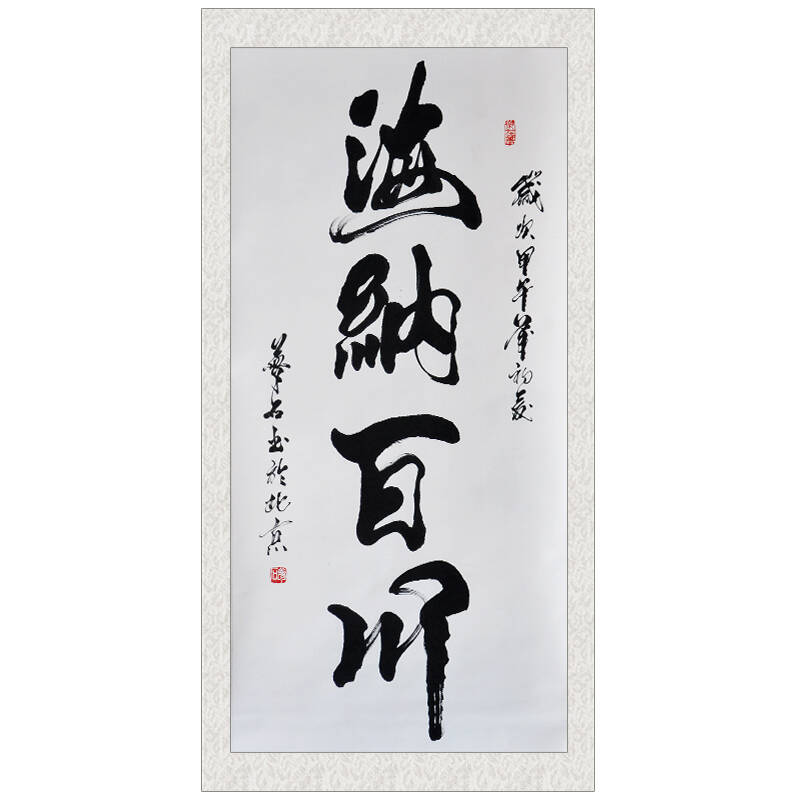 歲次甲午初夏
海納百川
華石書於北京